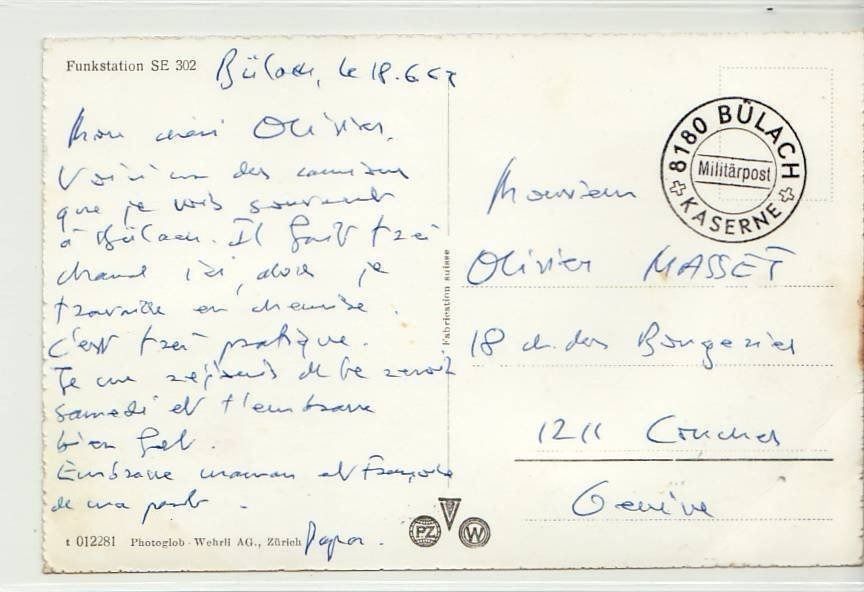 Funkstation SE 302
Bülach, le 18.6.67
Mon cheri Olivier,
Voici un des camions
que je vois souvent
à Bülach. Il fait trés
chaud ici, alors je
travaille en chemise.
C'est trés pratique.
Je me réjouis de te revoir
samedi et t'embrasse
bien fort.
Embrasse maman et Françoise
de ma part.
Papa.
t 012281 Photoglob-Wehrli AG., Zürich
Fabrication suisse
PZ
W
8180 BÜLACH
Militärpost
KASERNE
Monsieur
Olivier MASSET
18 ch. des Bougeries
1211 Conches
Genève